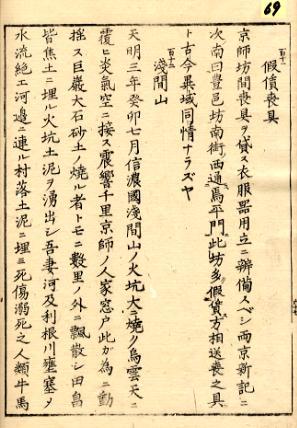 69
百十一
假債喪具
京師坊間喪具ヲ貸ス衣服器用立ニ辨備スベシ兩京新記ニ
次南曰豊邑坊南街西通焉平門此坊多假賃方相送喪之具
ト古今異域同情ナラズヤ
百十二
淺間山
天明三年癸卯七月信濃國淺間山ノ火坑大ニ燒ク烏雲天ニ
覆ヒ炎氣空ニ接ス震響千里京師ノ人家窓戸此ガ為ニ動
揺ス巨巖大石砂土ノ燒ル者トモニ數里ノ外ニ飄散シ田畠
皆焦土ニ埋ル火坑土泥ヲ湧出シ吾妻河及利根川壅塞ヲ
水流絶エ河邉ニ連ル村落土泥ニ埋ミ死傷溺死之人類牛馬